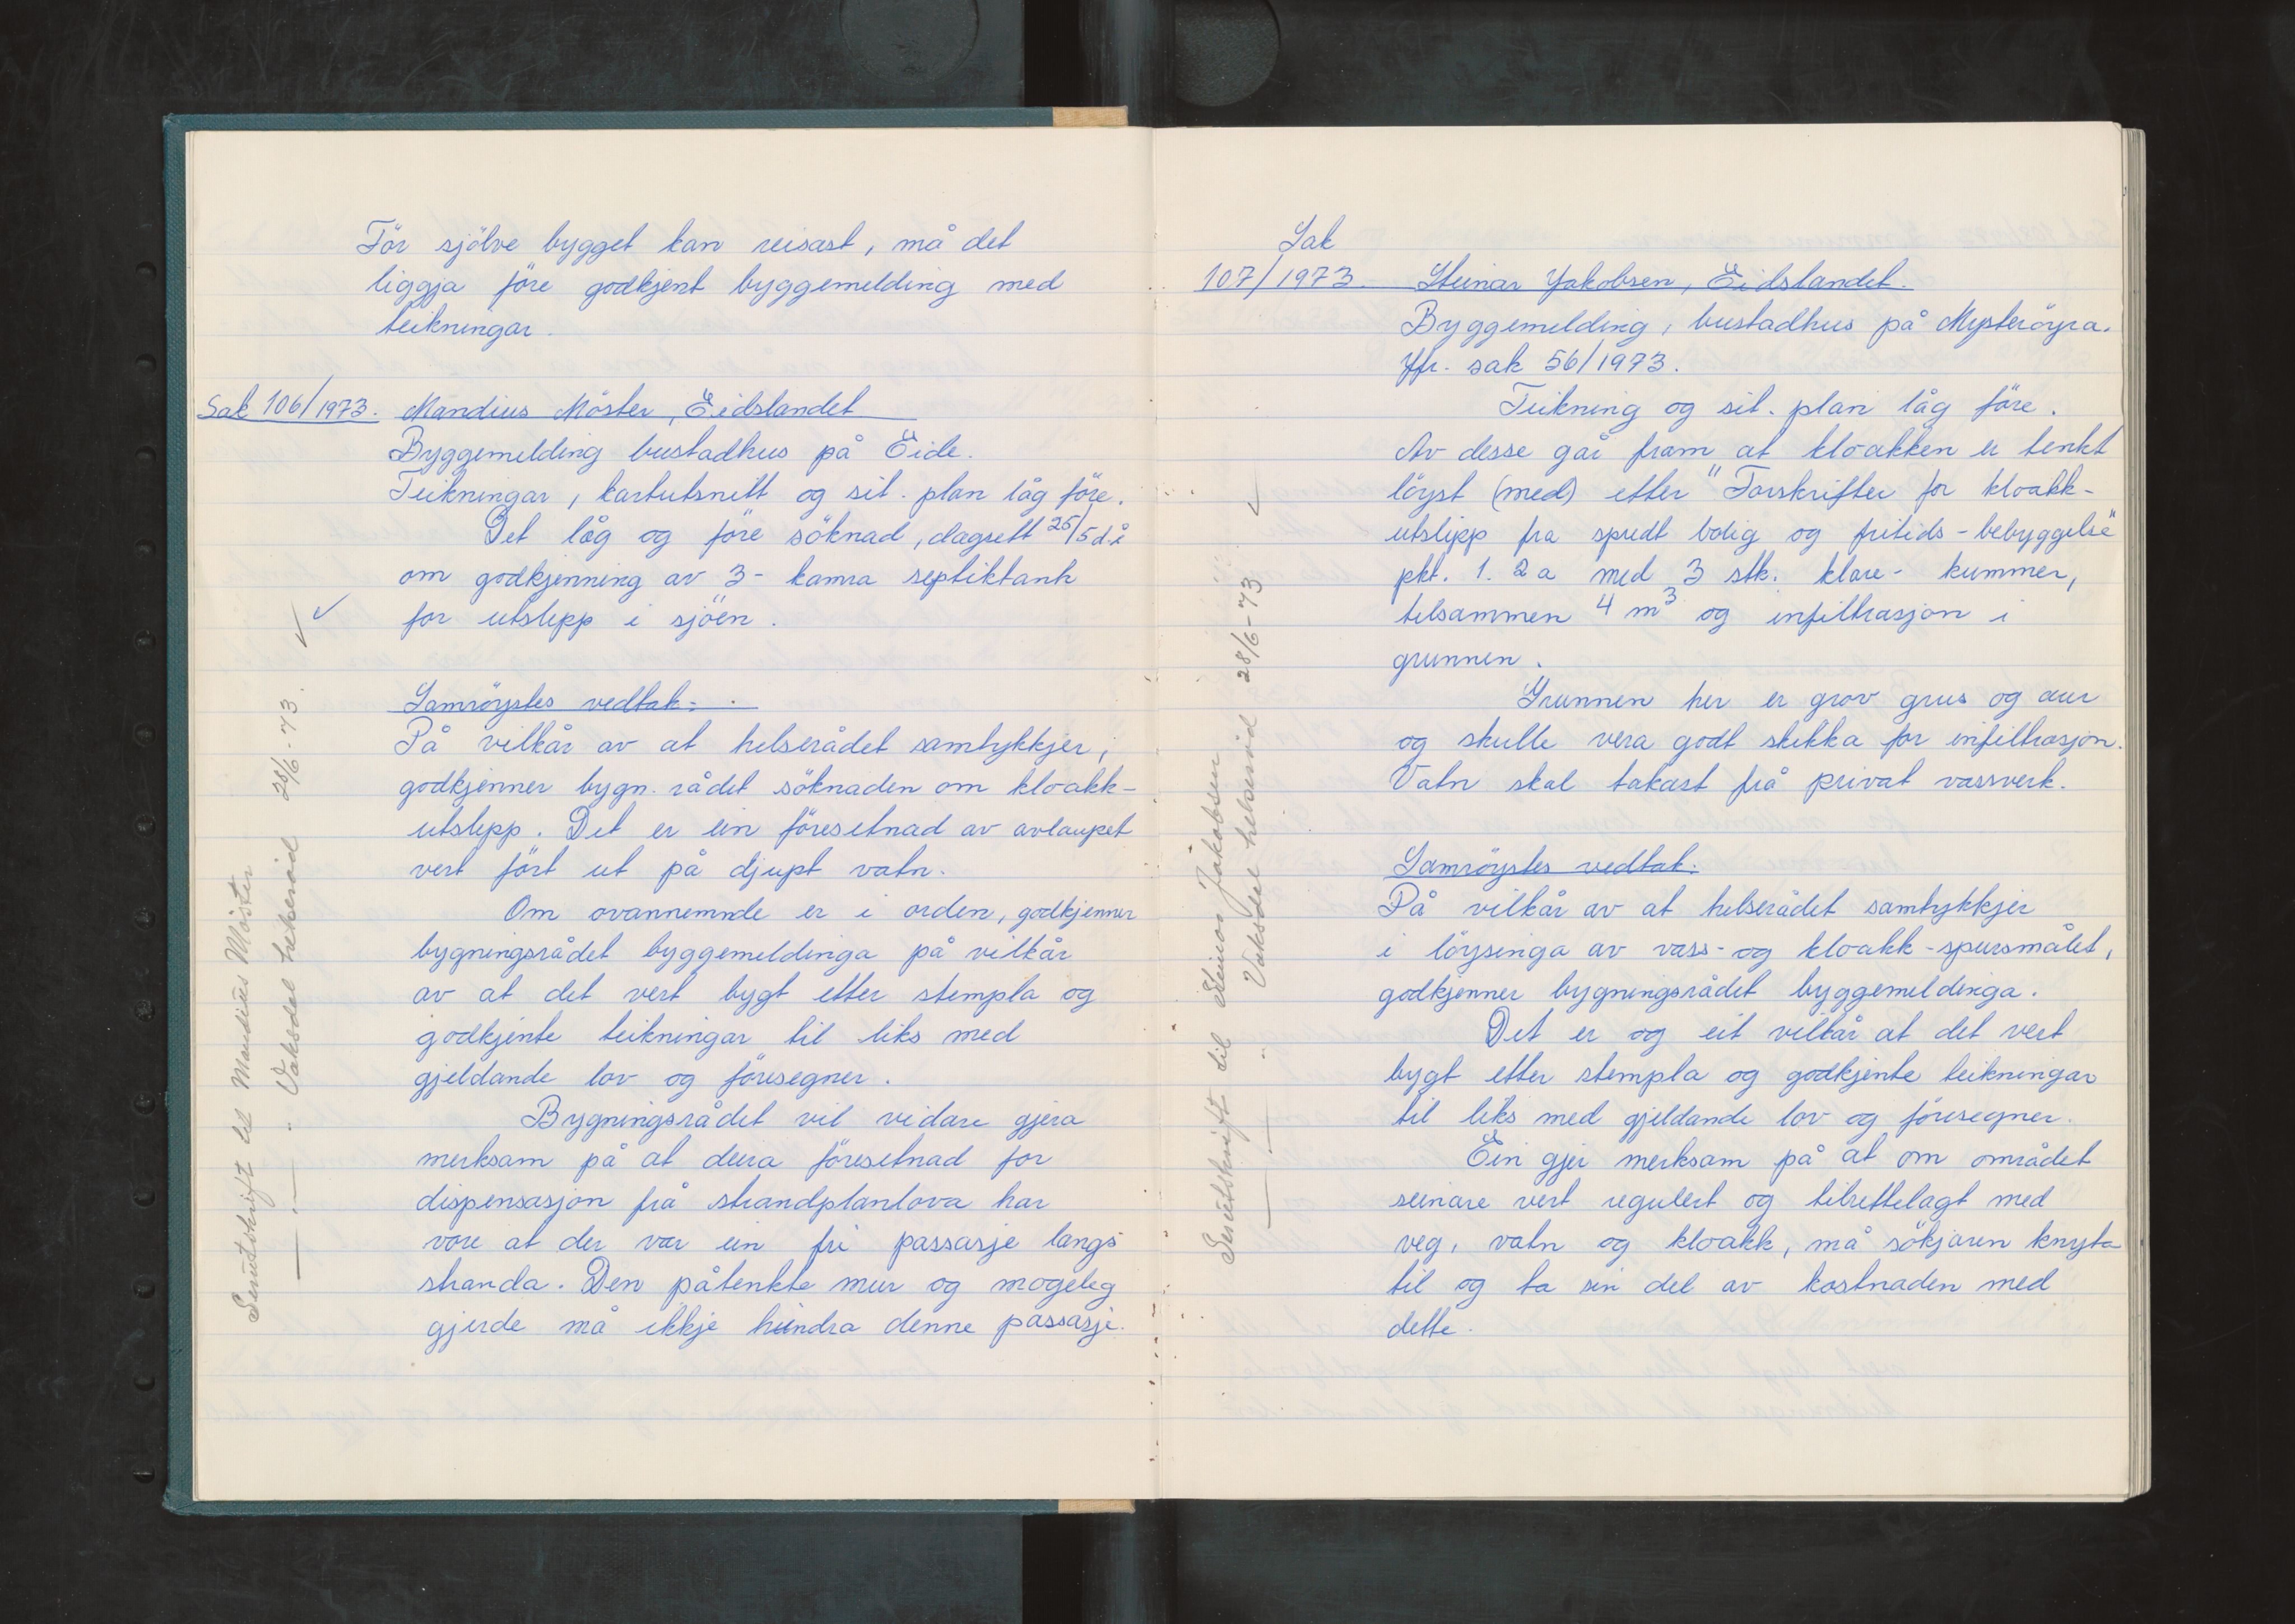 Før sjølve bygget kan reisast, må det
liggja føre godkjent byggemelding med
teikningar.
Sak 106/1973. Mandius Möster, Eidslandet
Byggemelding bustadhus på Eide.
Teikningar, kartutsnitt og sit. plan låg före.
Det låg og före söknad, dagsett 25/5 d.å
om godkjenning av 3- kamra septiktank
for utslepp i sjöen.
Samröystes vedtak:
På vilkår av at helserådet samtykkjer,
godkjenner bygn. rådet söknaden om kloakk-
utslepp. Det er ein föresetnad av avlaupet
vert fört ut på djupt vatn.
Om ovannemnde er i orden, godkjenner
bygningsrådet byggemeldinga på vilkår
av at det vert bygt etter stempla og
godkjente teikningar til liks med
gjeldande lov og föresegner.
Bygningsrådet vil vidare gjera
merksam på at deira föresetnad for
dispensasjon frå strandplanlova har
vore at der var ein fri passasje langs
stranda. Den påtenkte mur og mogeleg
gjerde må ikkje hindra denne passasje.
Serutskrift til Mandius Möster
— " — " Vaksdal helseråd 28/6-73.
Sak
107/1973. Steinar Jakobsen, Eidslandet.
Byggemelding, bustadhus på Mysteröyra.
Jfr. sak 56/1973.
Teikning og sit. plan låg före.
Av desse går fram at kloakken er tenkt
löyst (med) etter "Forskrifter for kloakk-
utslipp fra spredt bolig og fritids-bebyggelse"
pkt. 1. 2a med 3 stk. klare- kummer,
tilsammen 4 m³ og infiltrasjon i
grunnen.
Grunnen her er grov grus og aur
og skulle vera godt skikka for infiltrasjon.
Vatn skal takast frå privat vassverk.
Samröystes vedtak:
På vilkår av at helserådet samtykkjer
i löysinga av vass- og kloakk-spursmålet,
godkjenner bygningsrådet byggemeldinga.
Det er og eit vilkår at det vert
bygt etter stempla og godkjente teikningar
til liks med gjeldande lov og föresegner.
Ein gjer merksam på at om området
seinare vert regulert og tilrettelagt med
veg, vatn og kloakk, må sökjaren knyta
til og ta sin del av kostnaden med
dette.
Serutskrift til Steinar Jakobsen
— " — " Vaksdal helseråd 28/6-73